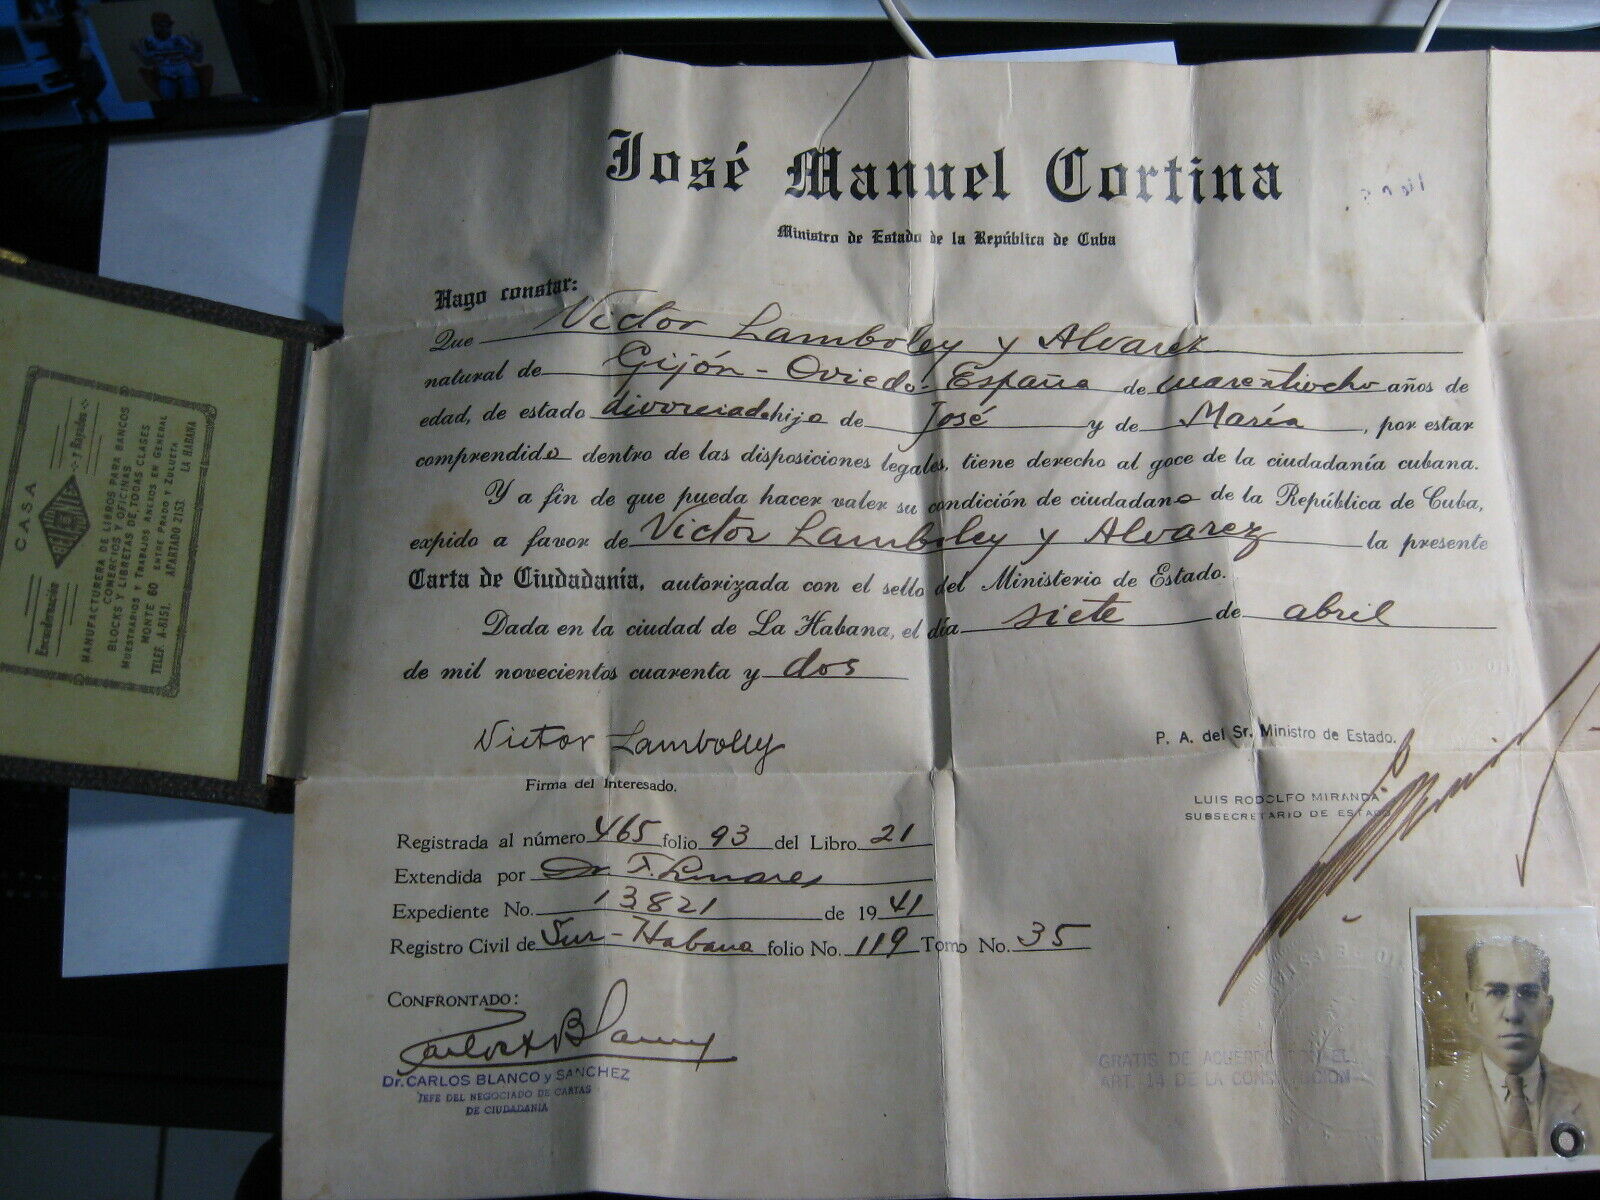 José Manuel Cortina
Ministro de Estado de la República de Cuba
Hago constar:
Que Victor Lamboley y Alvarez
natural de Gijón - Oviedo - España de cuarentiocho años de
edad, de estado divorciado hijo de José y de María, por estar
comprendido dentro de las disposiciones legales, tiene derecho al goce de la ciudadanía cubana.
Y a fin de que pueda hacer valer su condición de ciudadano de la República de Cuba,
expido a favor de Victor Lamboley y Alvarez la presente
Carta de Ciudadanía, autorizada con el sello del Ministerio de Estado.
Dada en la ciudad de La Habana, el día siete de abril
de mil novecientos cuarenta y dos
Victor Lambolley
Firma del Interesado.
P. A. del Sr. Ministro de Estado.
LUIS RODOLFO MIRANDA
SUBSECRETARIO DE ESTADO
Registrada al número 465 folio 93 del Libro 21
Extendida por Dr F. Linares
Expediente No. 13821 de 1941
Registro Civil de Sur-Habana folio No. 119 Tomo No. 35
CONFRONTADO:
Carlos Blanco
Dr. CARLOS BLANCO y SANCHEZ
JEFE DEL NEGOCIADO DE CARTAS
DE CIUDADANIA
GRATIS DE ACUERDO CON EL
ART. 14 DE LA CONSTITUCION
CASA
Encuadernación y Rayados
MANUFACTURERA DE LIBROS PARA BANCOS
COMERCIOS Y OFICINAS
BLOCKS Y LIBRETAS DE TODAS CLASES
MUESTRARIOS Y TRABAJOS ANEXOS EN GENERAL
MONTE 60 ENTRE PRADO Y ZULUETA
TELEF. A-8151. APARTADO 2153. LA HABANA